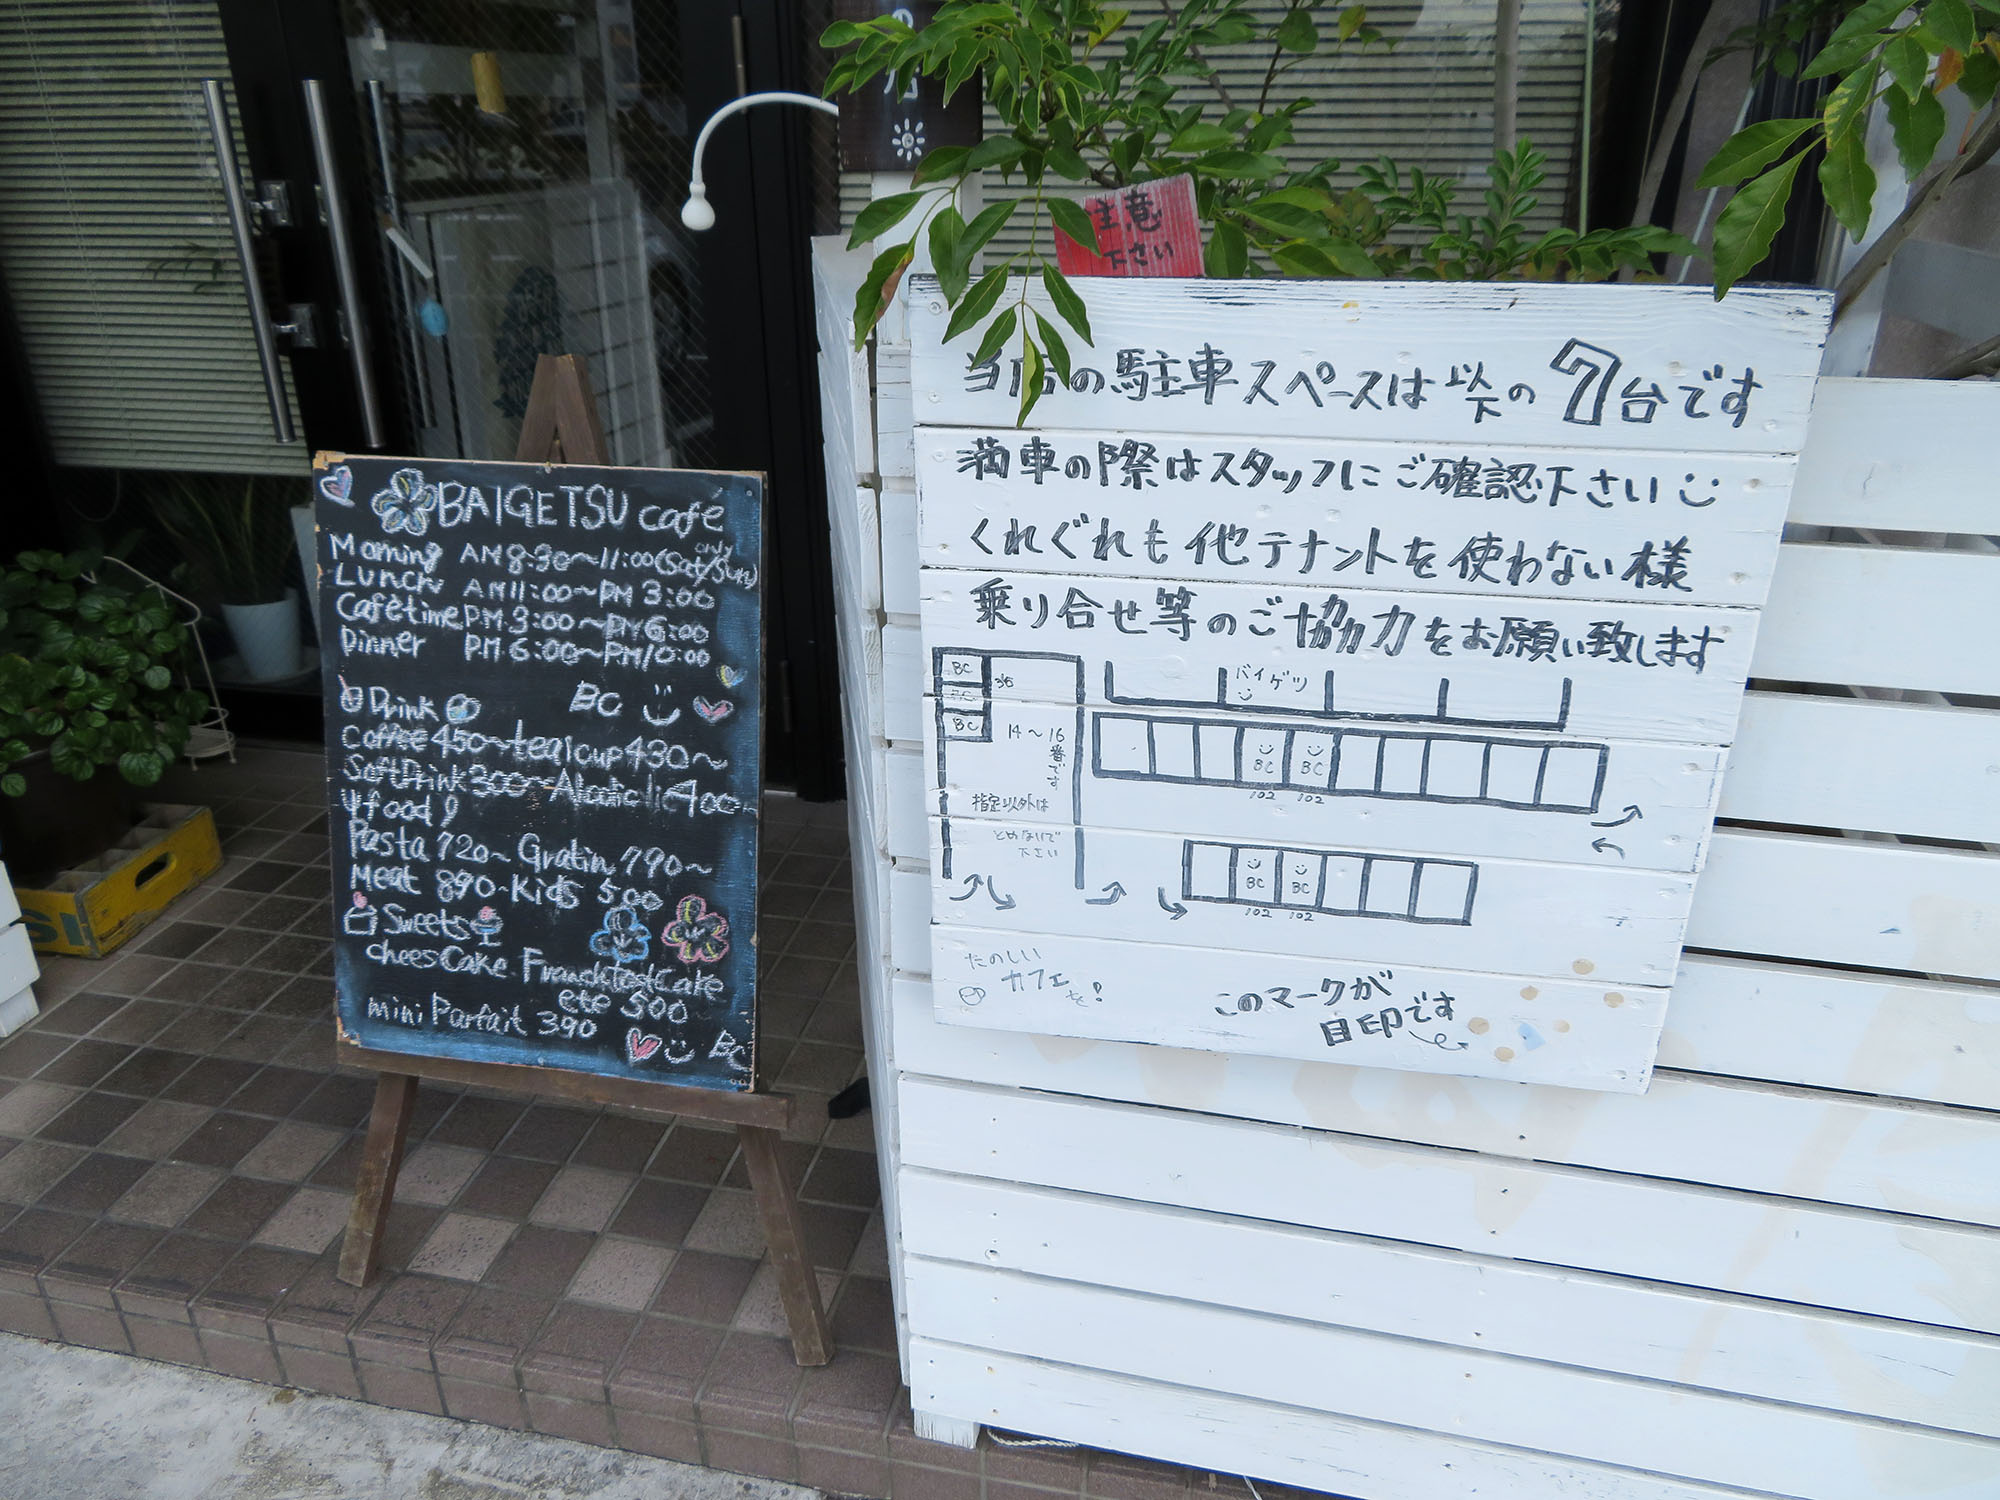 BAIGETSU café
Morning AM 8:30〜11:00(Sat/Sun) only
Lunch AM11:00〜PM 3:00
Cafètime PM.3:00〜PM6:00
Dinner PM.6:00〜PM10:00
BC
Drink
Coffee 450〜tea1cup430〜
SoftDrink 300〜Alcoholic400
food
Pasta 720〜Gratin 790〜
Meat 890〜Kids 500
Sweets
cheesCake FranchTostCake
ete 500
mini Parfait 390
BC
注意
下さい
当店の駐車スペースは以下の7台です
満車の際はスタッフにご確認下さい
くれぐれも他テナントを使わない様
乗り合せ等のご協力をお願い致します
BC
BC
BC
14〜16番です
指定以外は
とめないで
下さい
バイゲツ
BC BC
102 102
BC BC
102 102
たのしい
カフェを!
このマークが
目印です